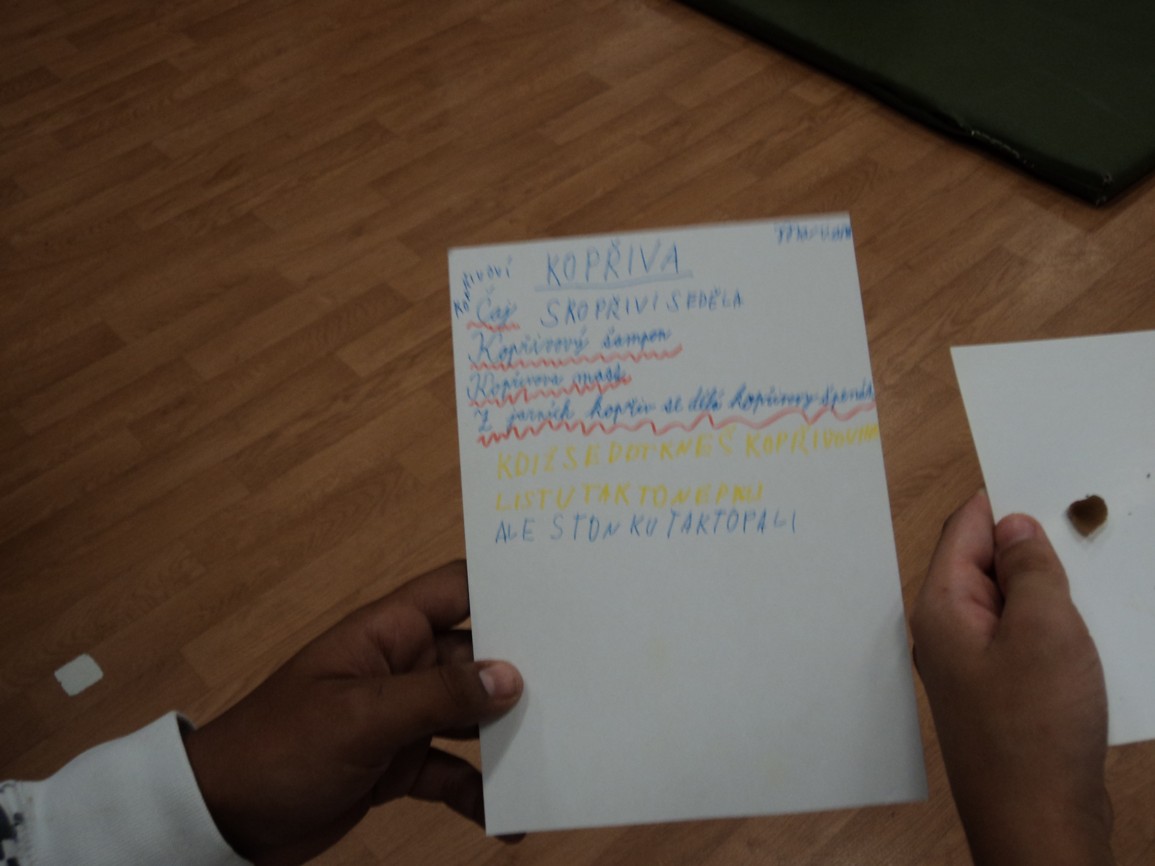 KOPŘIVA
KOPŘIVOVÍ
Čaj SKOPŘIVI SEDĚLA
Kopřivový šampon
Kopřivova mast
Z jarních kopřiv se dělá kopřivovy špenát
KDIŽ SE DOTKNEŠ KOPŘIVOVIHO
LISTU TAK TO NEPALI
ALE STONKU TAK TO PALI